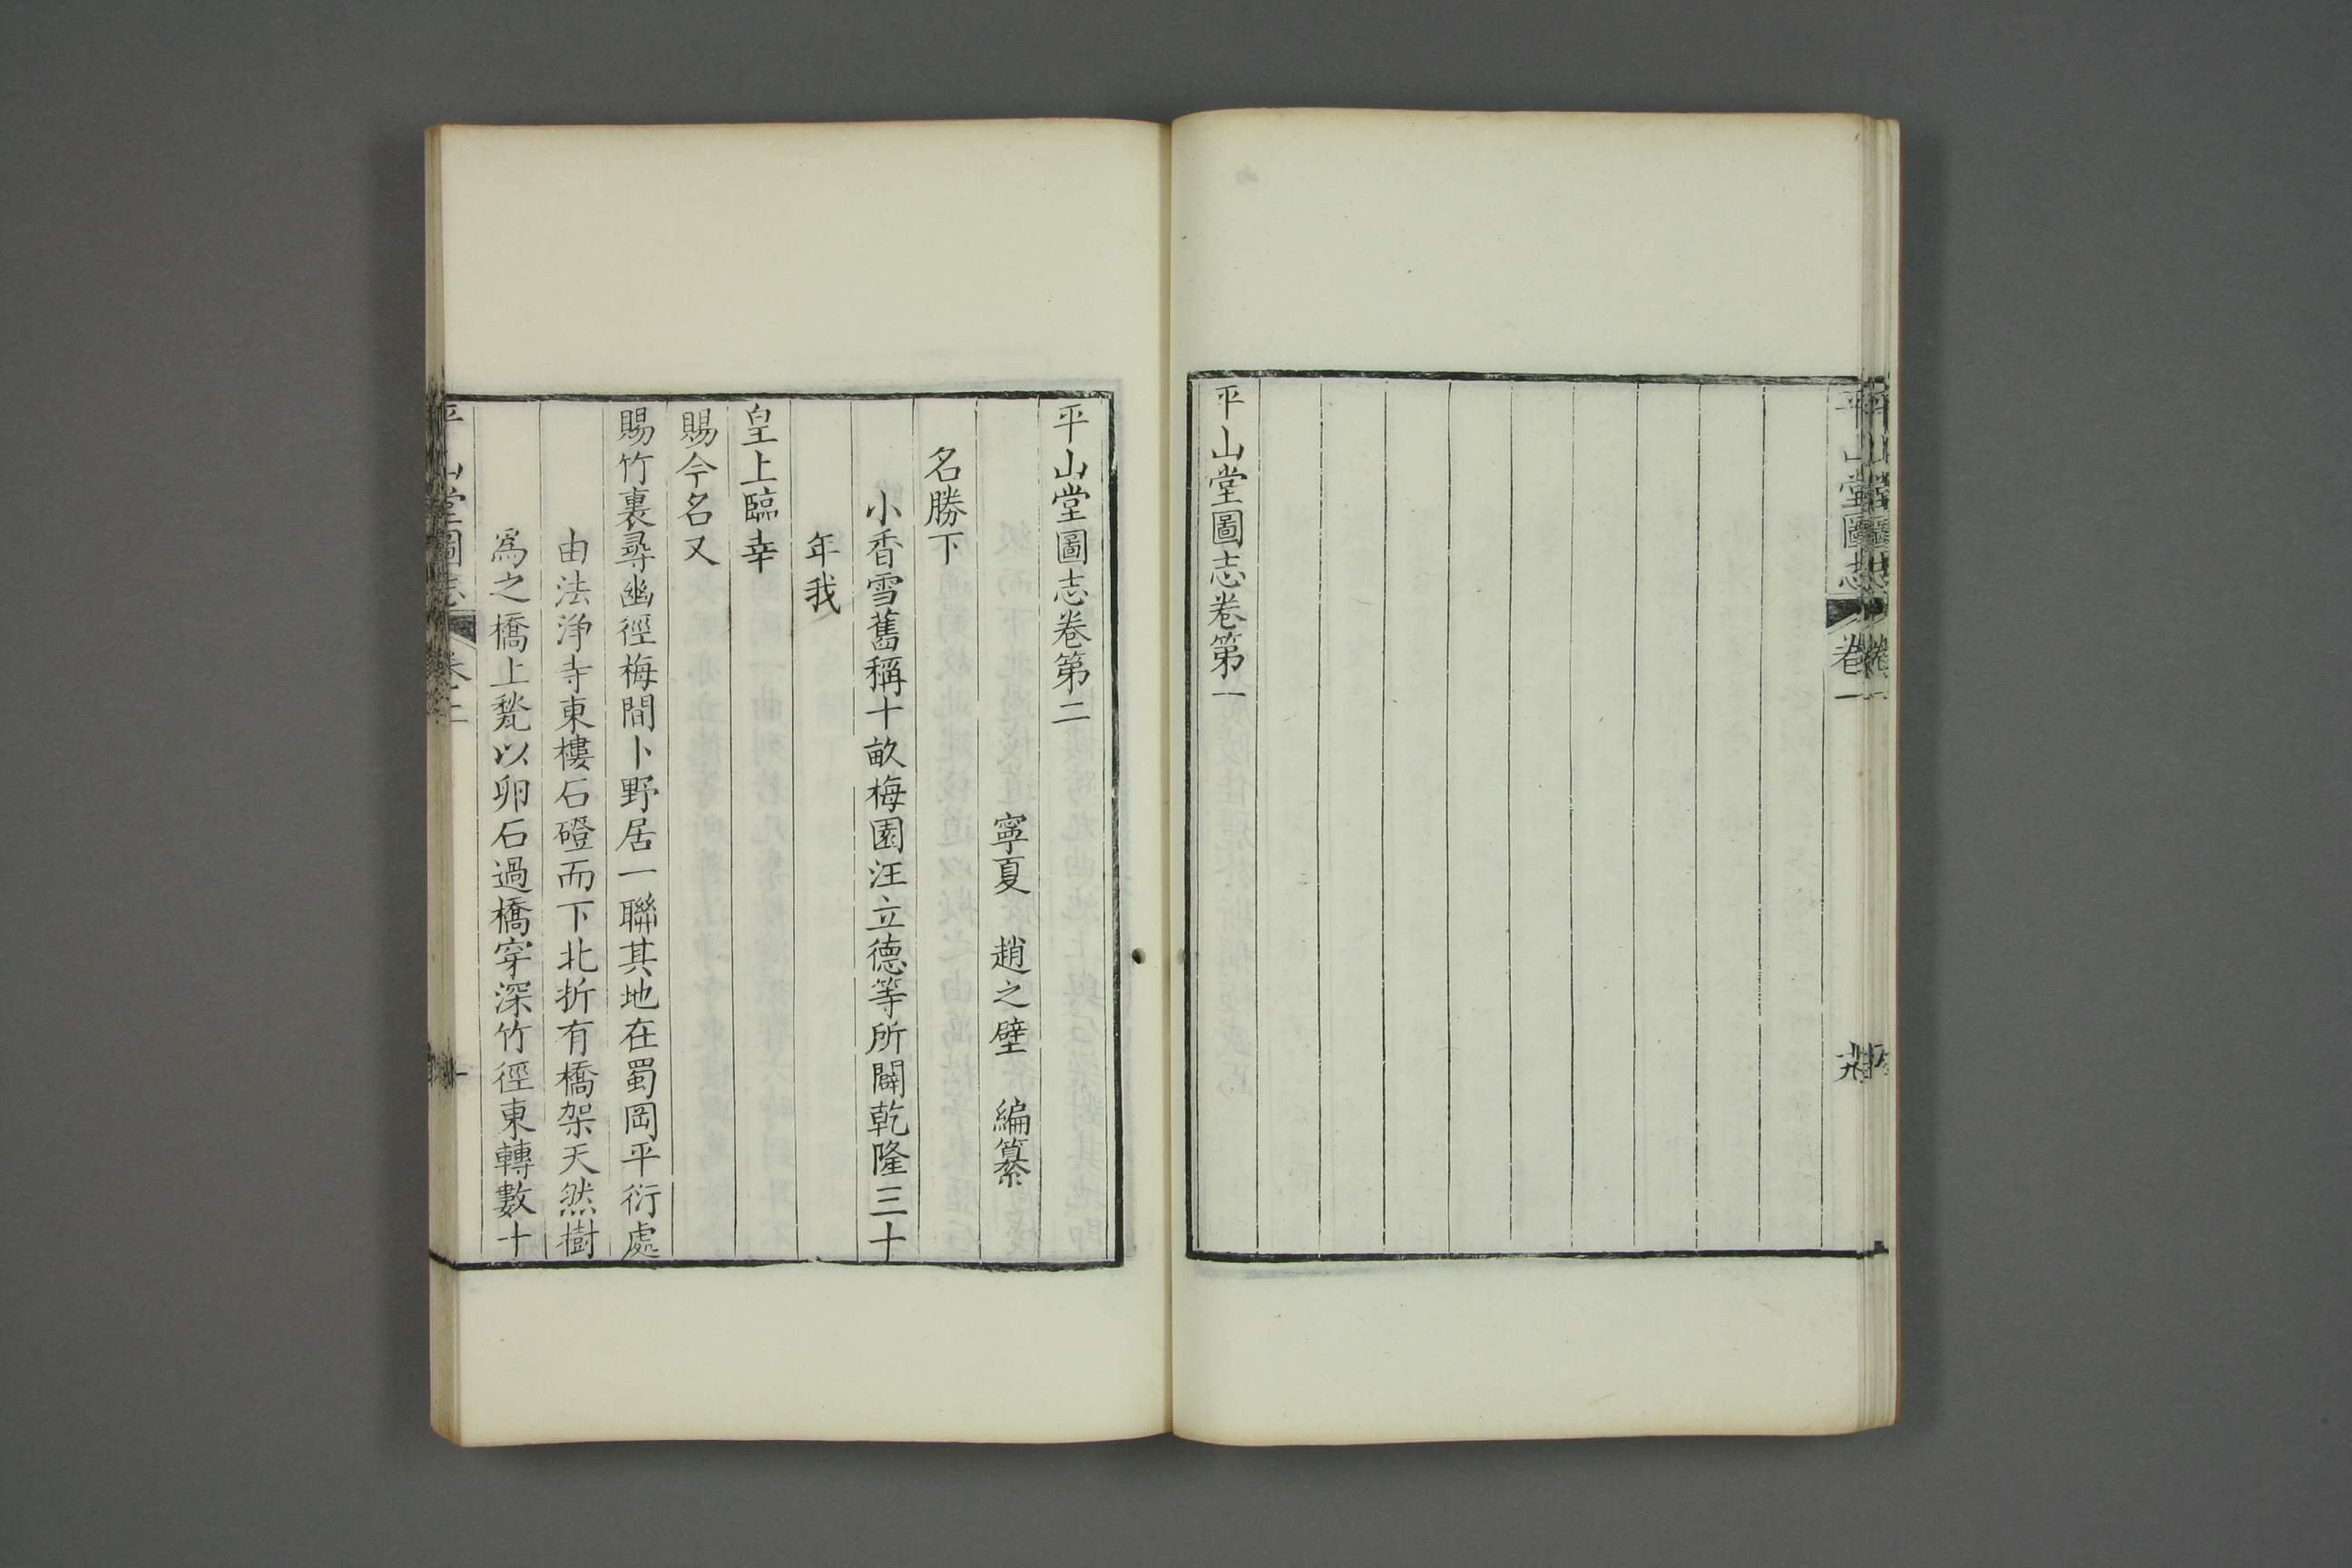 平山堂圖志 卷一
平山堂圖志卷第一
平山堂圖志卷第二
寧夏 趙之壁 編纂
名勝下
小香雪舊稱十畝梅園汪立德等所闢乾隆三十
年我
皇上臨幸
賜今名又
賜竹裏尋幽徑梅間卜野居一聯其地在蜀岡平衍處
由法淨寺東樓石磴而下北折有橋架天然樹
爲之橋上甃以卵石過橋穿深竹徑東轉數十
平山堂圖志 卷二